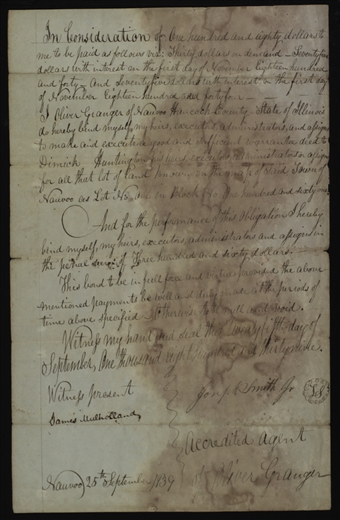 In Consideration of One hundred and eighty dollars to
me to be paid as follows viz: Thirty dollars on demand — Seventy five
dollars with interest on the first day of November Eighteen hundred
and forty — And Seventy five dollars with interest on the first day
of November Eighteen hundred and forty
I Oliver Granger of Nauvoo Hancock County State of Illinois
do hereby bind myself, my heirs, executors administrators and assigns
to make and execute a good and sufficient warrantee deed to
Dimick Huntington his heirs executors Administrators or assigns
for all that lot of land known on the of said Town of
Nauvoo as Lot No. one in Block One hundred and sixty
And for the performance of this obligation I hereby
bind myself, my heirs, executors administrators and assigns in
the penal sum of Three hundred and sixty dollars.
This bond to be in full force and provided the above
mentioned payments be well and duly made at the periods of
time above specified — Otherwise to be void.
Witness my hand and seal this twenty fifth day of
September, One thousand eight hundred and thirty nine.
Witness present
Joseph Smith Jr
James Mulholland
Accredited Agent
Oliver Granger
Nauvoo 25th September 1839